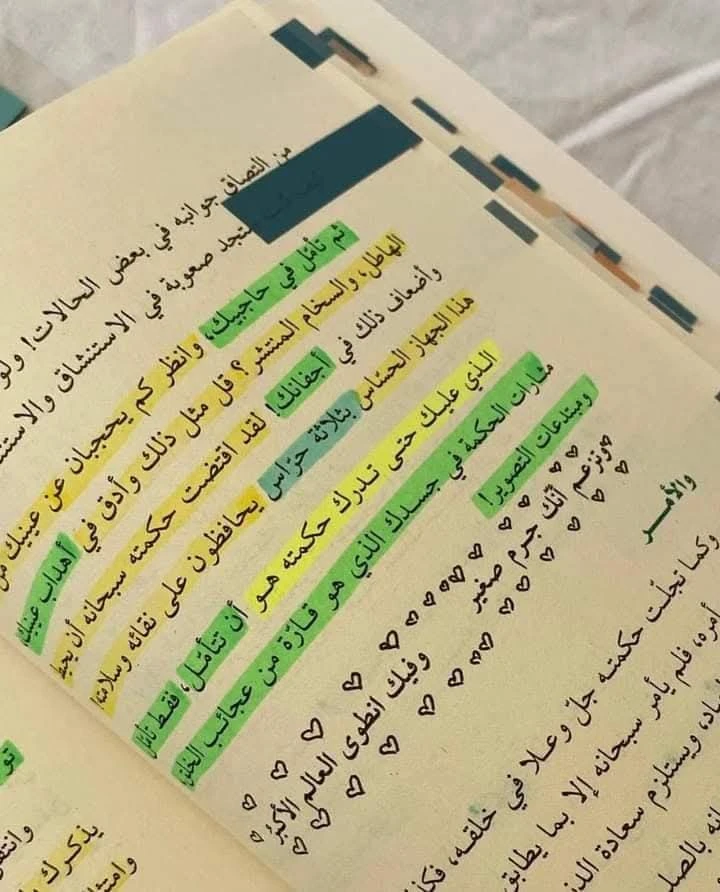 من التصاق جوانبه في بعض الحالات! ولو
ستجد صعوبة في الاستنشاق والاستنث
ثم تأمّل في حاجبيك، وانظر كم يحجبان عن عينيك من
الهاطل، والسخام المنتشر؟ قل مثل ذلك وأدق في أهداب عينيك،
وأضعاف ذلك في أجفانك! لقد اقتضت حكمته سبحانه أن يحيط
هذا الجهاز الحسّاس بثلاثة حرّاس يحافظون على نقائه وسلامته!
الذي عليك حتى تدرك حكمته هو أن تتأمّل، فقط تأمّل
منارات الحكمة في جسدك الذي هو قارّة من عجائب الخلق
ومبتدعات التصوير!
وتزعم أنّك جرم صغير
وفيك انطوى العالم الأكبر
والأمر
وكما تجلّت حكمته جلّ وعلا في خلقه، فكذ
أمره، فلم يأمر سبحانه إلا بما يطابق
ويستلزم سعادة
يذكرك